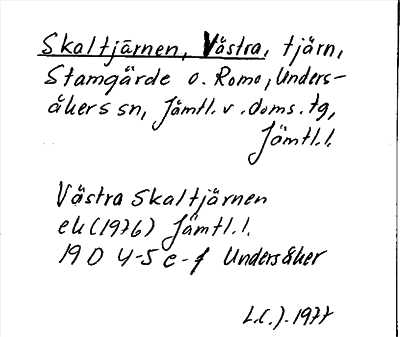 Skaltjärnen, Västra, tjärn,
Stamgärde o. Romo, Unders-
åkers sn, Jämtl. v. doms. tg,
Jämtl.l.
Västra Skaltjärnen
ek (1976) Jämtl.l.
19 D 4-5 e-f Undersåker
1977